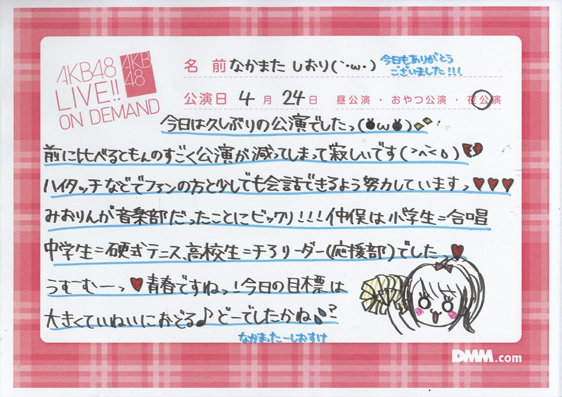 AKB48
LIVE!!
ON DEMAND
AKB
48
名 前 なかまた しおり(`･ω･)
今日もありがとう
ございました!!!
公演日 4 月 24 日 昼公演・おやつ公演・夜公演
今日は久しぶりの公演でしたっ(●ω●)
前に比べるともんのすごく公演が減ってしまって寂しいです(>へ<。)
ハイタッチなどでファンの方と少しでも会話できるよう努力していますっ♥♥♥
みおりんが音楽部だったことにビックリ!!!仲俣は小学生=合唱
中学生=硬式テニス、高校生=チアリーダー(応援部)でしたっ♥
うすむーっ♥青春ですねっ!今日の目標は
大きくていねいにおどる♪どーでしたかね♪?
なかまたーしおすけ
DMM.com